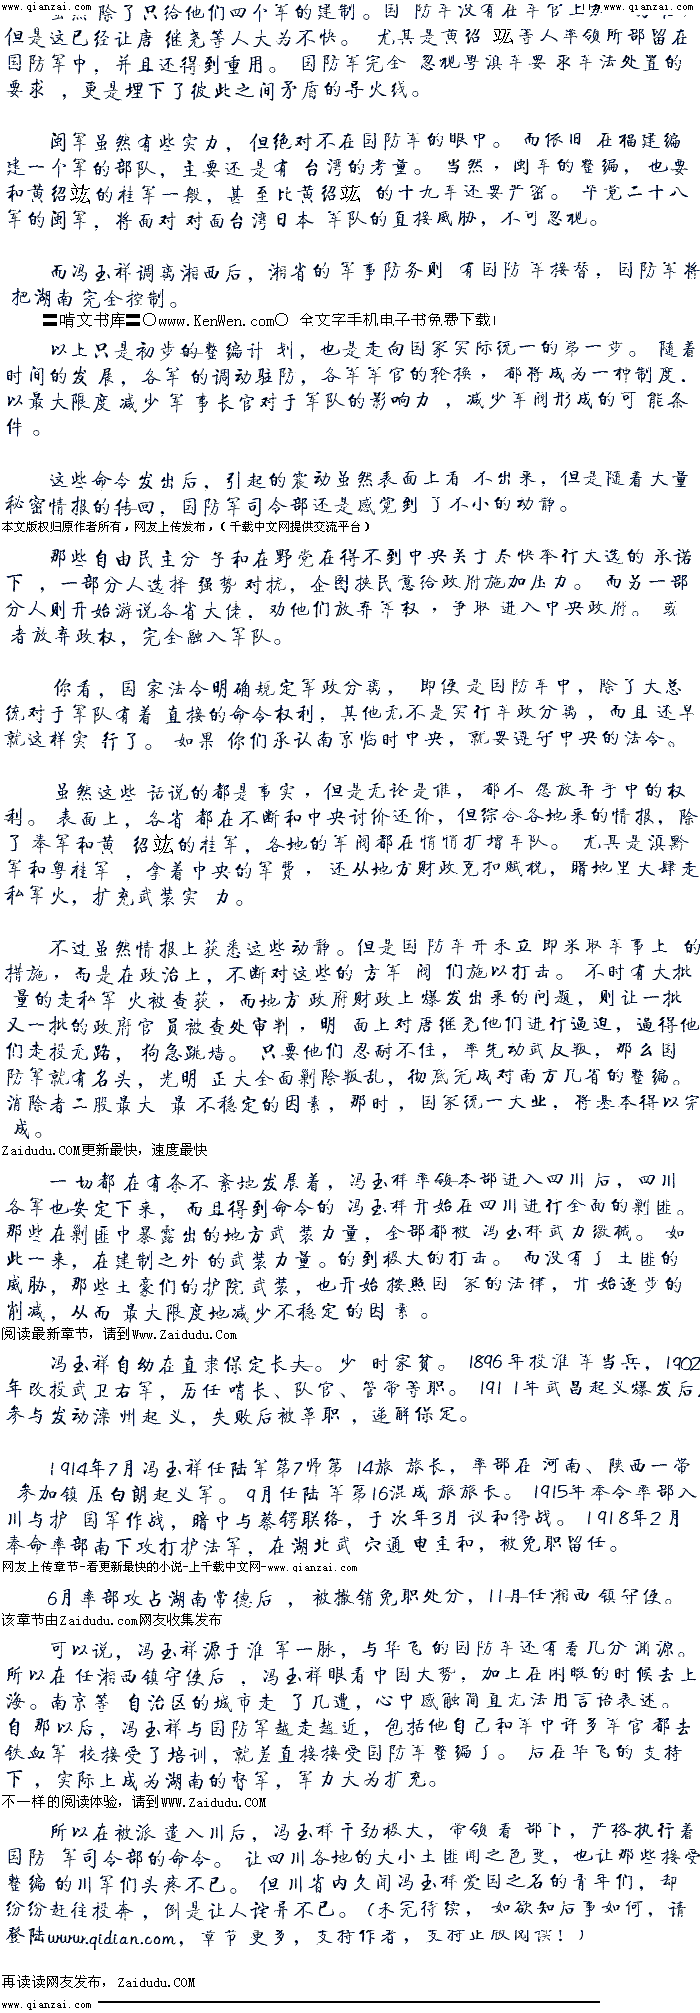 www.qianzai.com
虽然 除了只给他们四个军的建制。国 防军没有在军官上
但是这已经让唐 继尧等人大为不快。 尤其是黄绍 竑等人率领所部留在
国防军中，并且还得到重用。 国防军完全 忽视粤滇军要求军法处置的
要求 ，更是埋下了彼此之间矛盾的导火线。
闽军虽然有些实力，但绝对不在国防军的眼中。 而依旧 在福建编
建一个军的部队，主要还是有 台湾的考量。 当然，闽军的整编，也要
和黄绍竑的桂军一般，甚 至比黄绍竑 的十九军还要严密。 毕竟二十八
军的闽军，将面对 对面台湾日本 军队的直接威胁，不可忽视。
而冯玉祥调离湘西后，湘省的 军事防务则 有国防 军接替，国防军将
把湖南 完全控制。
〓啃文书库〓〇www.KenWen.com〇 全文字手机电子书免费下载!
以上只是初步的整编计 划，也是走向国家实际统一的第一步。 随着
时间的发 展，各军 的调动驻防，各军军官的轮换， 都将成为一种制度.
以最大限度 减少 军 事长官对于军队的影响力 ，减少军阀形成的可 能条
件 。
这些命令 发出后，引起的震动虽然表面上看 不出来，但是随着大量
秘密情报的传回，国防军司令部还是感觉到 了不小的动静。
本文版权归原作者所有，网友上传发布，（千载中文网提供交流平台）
那些自由民主分 子和在野党在得不到中央关于尽快举行大选的 承诺
下 ，一部分人选择 强势 对抗，企图挟民意给政府施加压力。 而另一部
分人则开始游说各省大佬，劝他们放弃军权，争取 进入中央政府。 或
者放弃政权，完全融入军队。
你看，国 家法令明确规定军政分离， 即便 是国防军中，除了大总
统对于军队有着 直接的命令权利，其他无不是实行军政分离 ，而且 还早
就这样实 行了。 如果 你们承认南京临时中央，就要遵守中央的法令。
虽然这些 话说的都是事实，但是无论是谁， 都不 愿放弃手中的权
利。 表面上，各省 都在不断和中央讨价还价，但综合各地来的情报，除
了 奉军和黄 绍竑的桂军，各地的军阀都在悄悄扩增军队。 尤其是滇黔
军和粤桂军 ，拿着中央的军费， 还从地方财政克扣赋税，暗地里大肆走
私军火，扩充武装实 力。
不过虽然情报上获悉这些动静。但是国 防军并未立 即采取军事上 的
措施，而是在政治上，不断对这些的 方军 阀 们施以打击。 不时有大批
量的走私军 火被查获，而地方 政府财政上 爆发出来的问题，则让一批
又一批的政府官 员被查处审判，明 面上对唐继尧他们进行逼迫，逼得他
们走投无路， 狗急跳墙。 只要他们 忍耐不住，率先动武反叛，那么国
防军就有名头，光明 正大全面剿除叛乱，彻底完成对南方几省的整编。
消除者二股最大 最 不稳定的因素，那时 ，国家统一大业，将基本得以完
成。
Zaidudu.COM更新最快，速度最快
一切都 在有条不 紊地发展着，冯玉祥率领本部进入四川 后，四川
各军也安定下来， 而且得到命令的 冯玉祥开始在四川进行全面的剿匪。
那些在剿匪中暴露出的地方武 装力量，全部都被 冯玉祥武力缴械。 如
此一来，在建制之外 的武装力量。的到极大的打击。 而没有了 土匪的
威胁，那些土豪们的护院 武装，也开始 按照国 家的法律，开始逐步的
削减，从而 最大限度地减少不稳定 的因 素 。
阅读最新章节，请到Www.Zaidudu.Com
冯玉祥自幼在直隶保定长大。少 时家贫。 1896年投淮军当兵，1902
年改投武卫右军，历任 哨长、队官、管带等职。 191 1年武昌起义爆发后，
参与发动滦 州起 义，失败后被革职 ，递解保定。
1914年7月冯玉祥任陆 军第7师第 14旅 旅长，率部在 河南、陕西一带
参加镇 压白朗起义军。 9月任陆 军第16混成 旅旅长。 1915年奉令率部入
川与护 国军作战，暗中与蔡锷联络，于次年3月 议和停战。 1918年2月
奉命率部南下攻打护法军，在湖北武 穴通 电主和，被免职留任。
网友上传章节-看更新最快的小说-上千载中文网-www.qianzai.com
6月率部攻占湖南常德后 ， 被撤销免职处分，11月任湘西 镇守使。
该章节由Zaidudu.com网友收集发布
可以说，冯玉祥源于淮 军一脉，与华飞 的国防军还有着几分 渊源。
所以在 任湘西镇守使后 ，冯玉祥眼看中国大势，加上在闲暇的时候去上
海。南京等 自治区的城市走 了几遭，心中感触简直无法用言语表述。
自 那以后，冯玉祥与国防军越走越近，包括他自己和军中许多军官 都去
铁血军 校接受了培训，就差直接接受国防军整编了。 后在华飞的 支持
下 ，实际上成为湖南的督军，军力大为扩充。
不一样的阅读体验，请到WWW.ZaiduDu.COM
所以在被派 遣入川后，冯玉祥干劲极大，带领 着 部下，严格执行着
国防 军司令部的命令。 让四川各地的大小土匪闻之色变，也让那些接受
整编 的川军们头疼不已。 但川省内久闻冯玉祥爱国之名的青年们，却
纷纷赶往投奔 ，倒是让人诧异不已。（未完待续， 如欲知后事如何，请
登陆www.qidian.com，章节更多，支持作者，支持正版阅读！）
再读读网友发布， Zaidudu.COM
www.qianzai.com